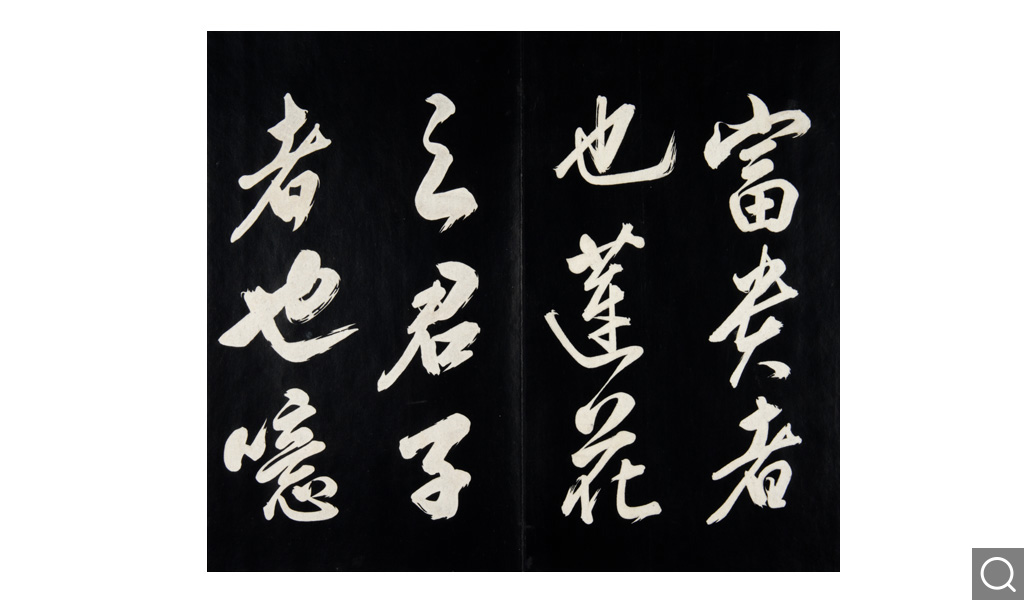 富貴者
也蓮花
之君子
者也噫